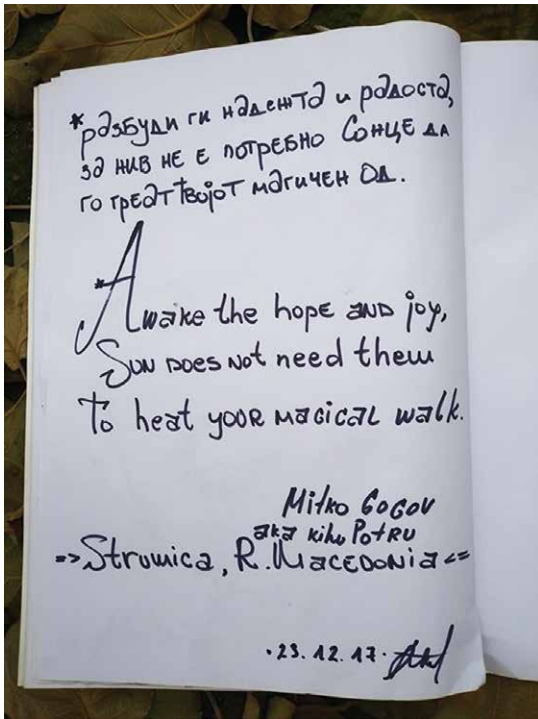 *разбуди ги надежта и радоста,
за нив не е потребно Сонце да
го греат твојот магичен од.
*Awake the hope and joy,
Sun does not need them
To heat your magical walk.
Mitko Gogov
aka kiho Potru
=> Strumica, R. Macedonia <=
·23.12.17·